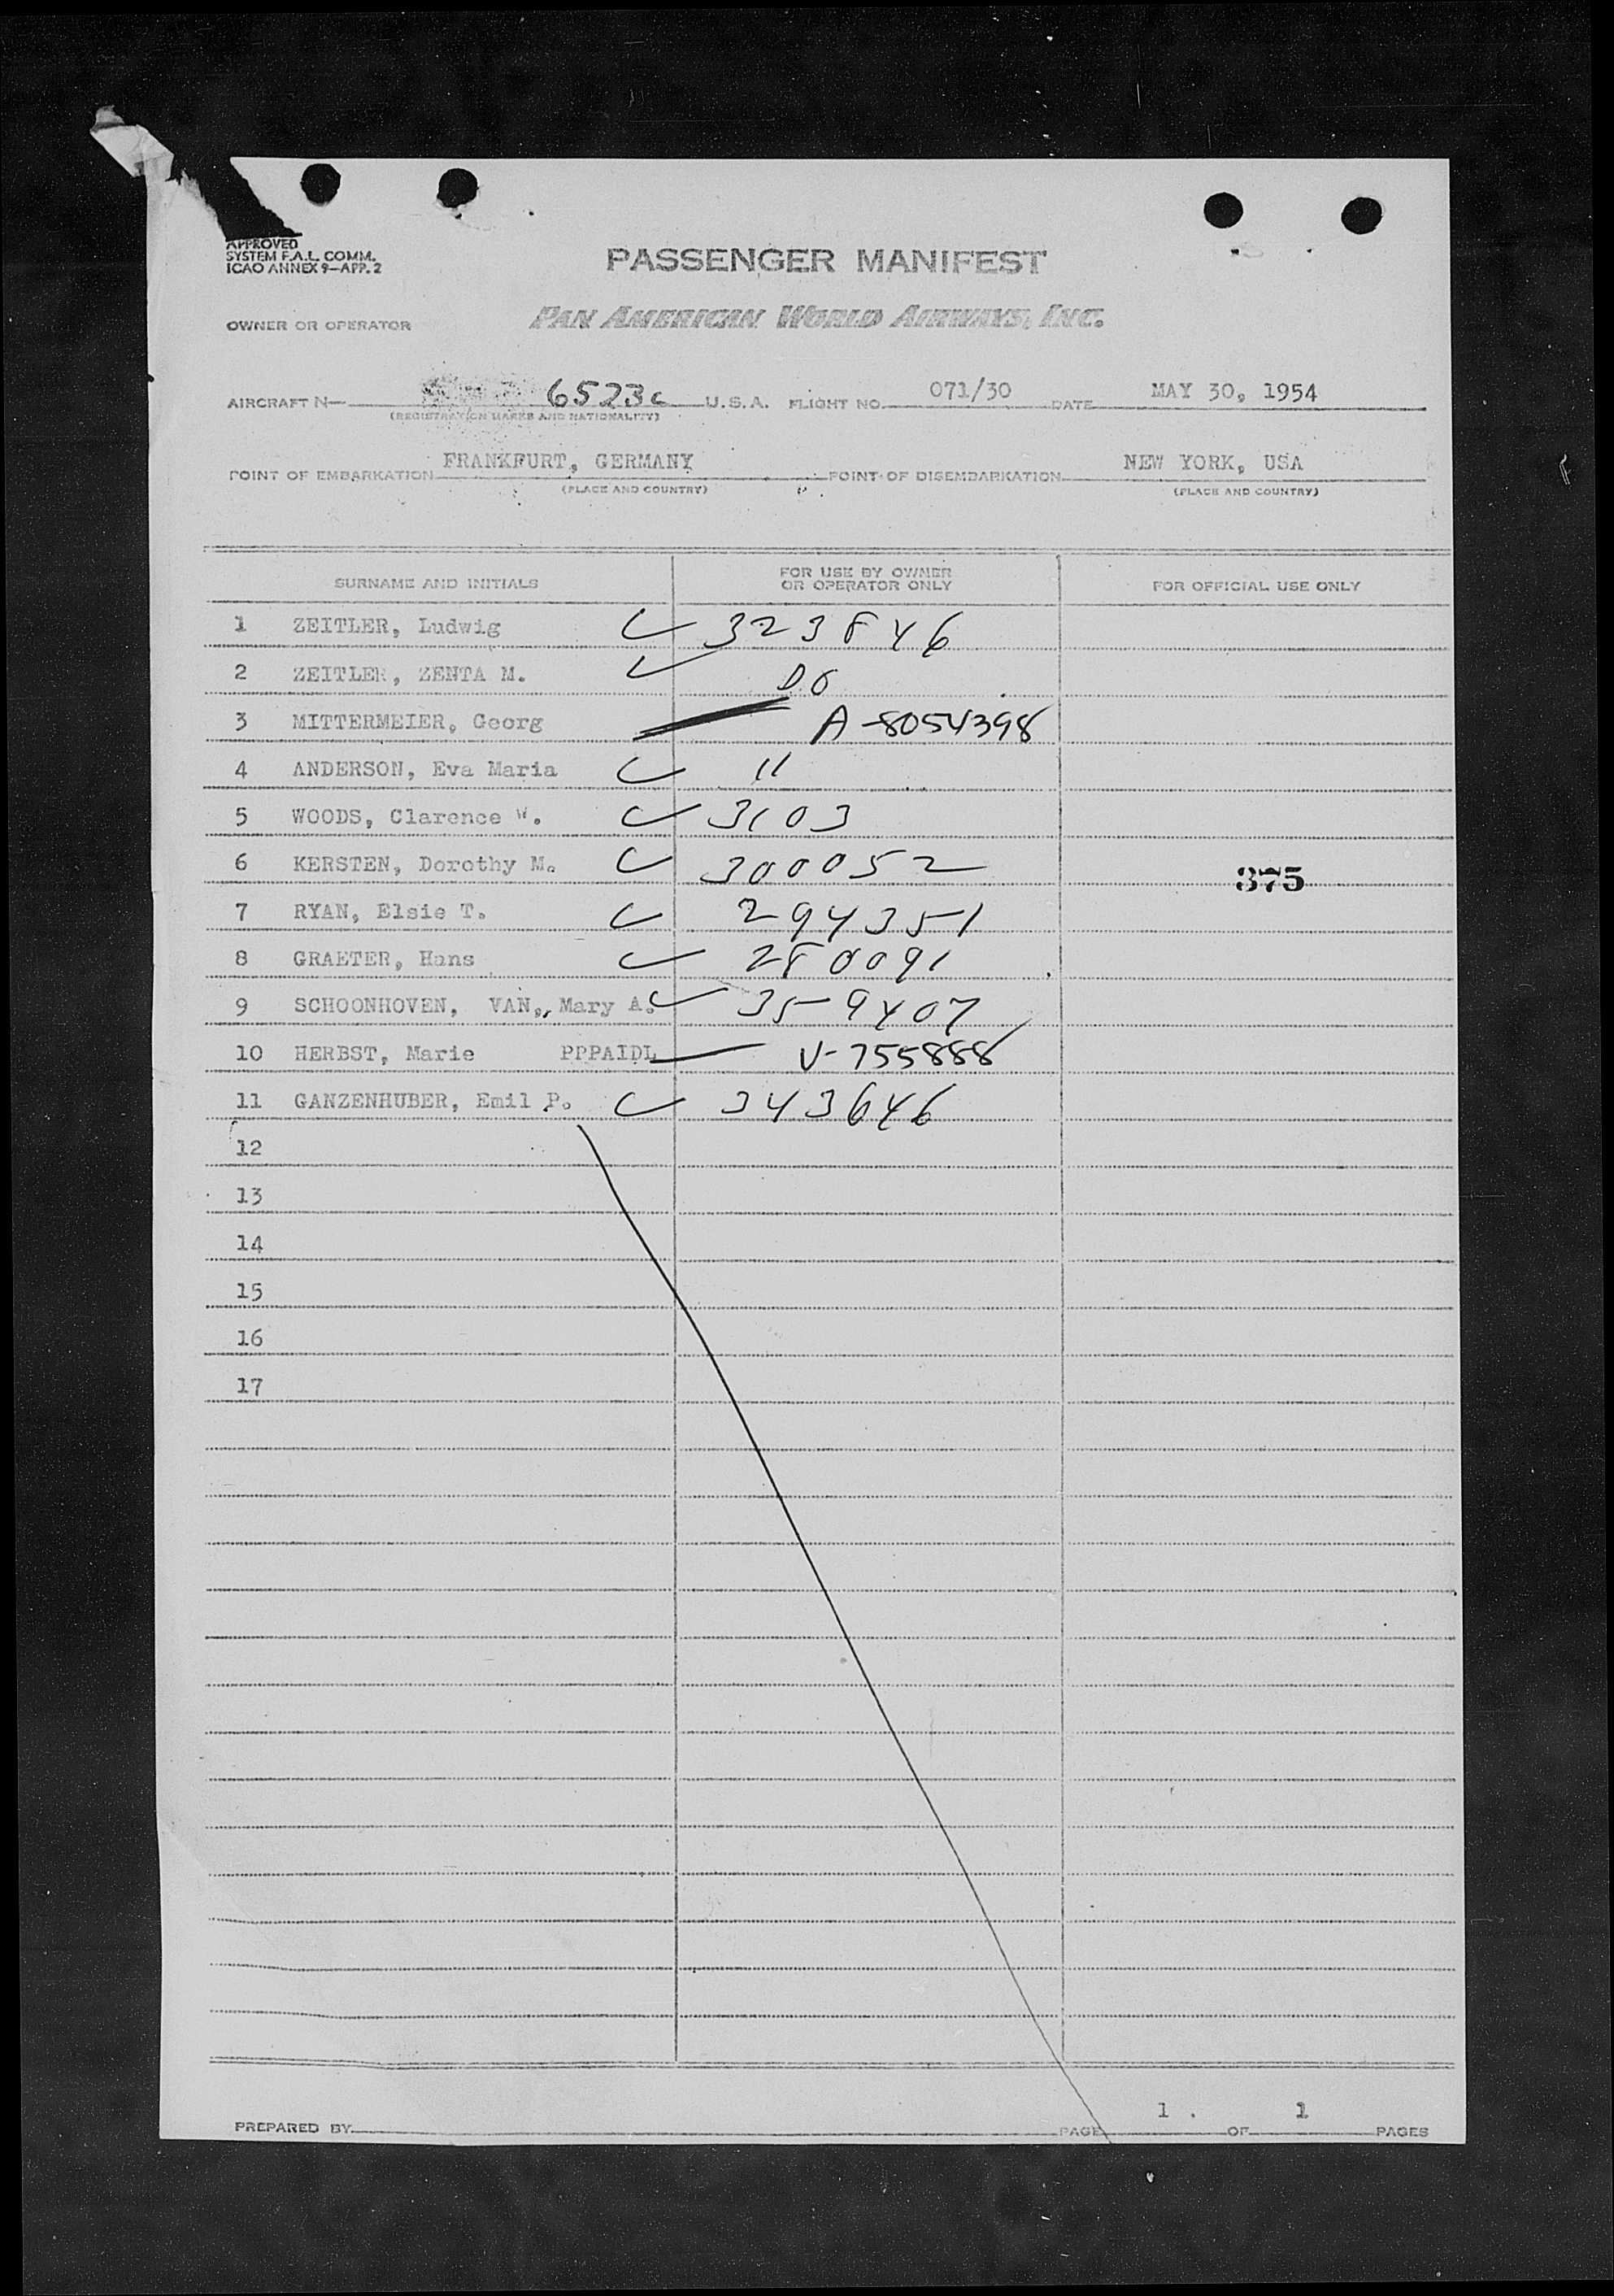 APPROVED
SYSTEM F.A.L. COMM.
ICAO ANNEX 9—APP. 2
PASSENGER MANIFEST
OWNER OR OPERATOR PAN AMERICAN WORLD AIRWAYS, INC.
AIRCRAFT N— 6523c U.S.A. FLIGHT NO. 071/30 DATE MAY 30, 1954
(REGISTRATION MARKS AND NATIONALITY)
POINT OF EMBARKATION FRANKFURT, GERMANY POINT OF DISEMBARKATION NEW YORK, USA
(PLACE AND COUNTRY) (PLACE AND COUNTRY)
SURNAME AND INITIALS FOR USE BY OWNER OR OPERATOR ONLY FOR OFFICIAL USE ONLY
1 ZEITLER, Ludwig ✓ 323846
2 ZEITLER, ZENTA M. ✓ DO
3 MITTERMEIER, Georg A-8054398
4 ANDERSON, Eva Maria ✓ 11
5 WOODS, Clarence W. ✓ 3103
6 KERSTEN, Dorothy M. ✓ 300052 375
7 RYAN, Elsie T. ✓ 294351
8 GRAETER, Hans ✓ 280091
9 SCHOONHOVEN, VAN, Mary A. ✓ 359407
10 HERBST, Marie PPPAIDL V-755888
11 GANZENHUBER, Emil P. ✓ 343646
12
13
14
15
16
17
PREPARED BY PAGE 1 OF 1 PAGES